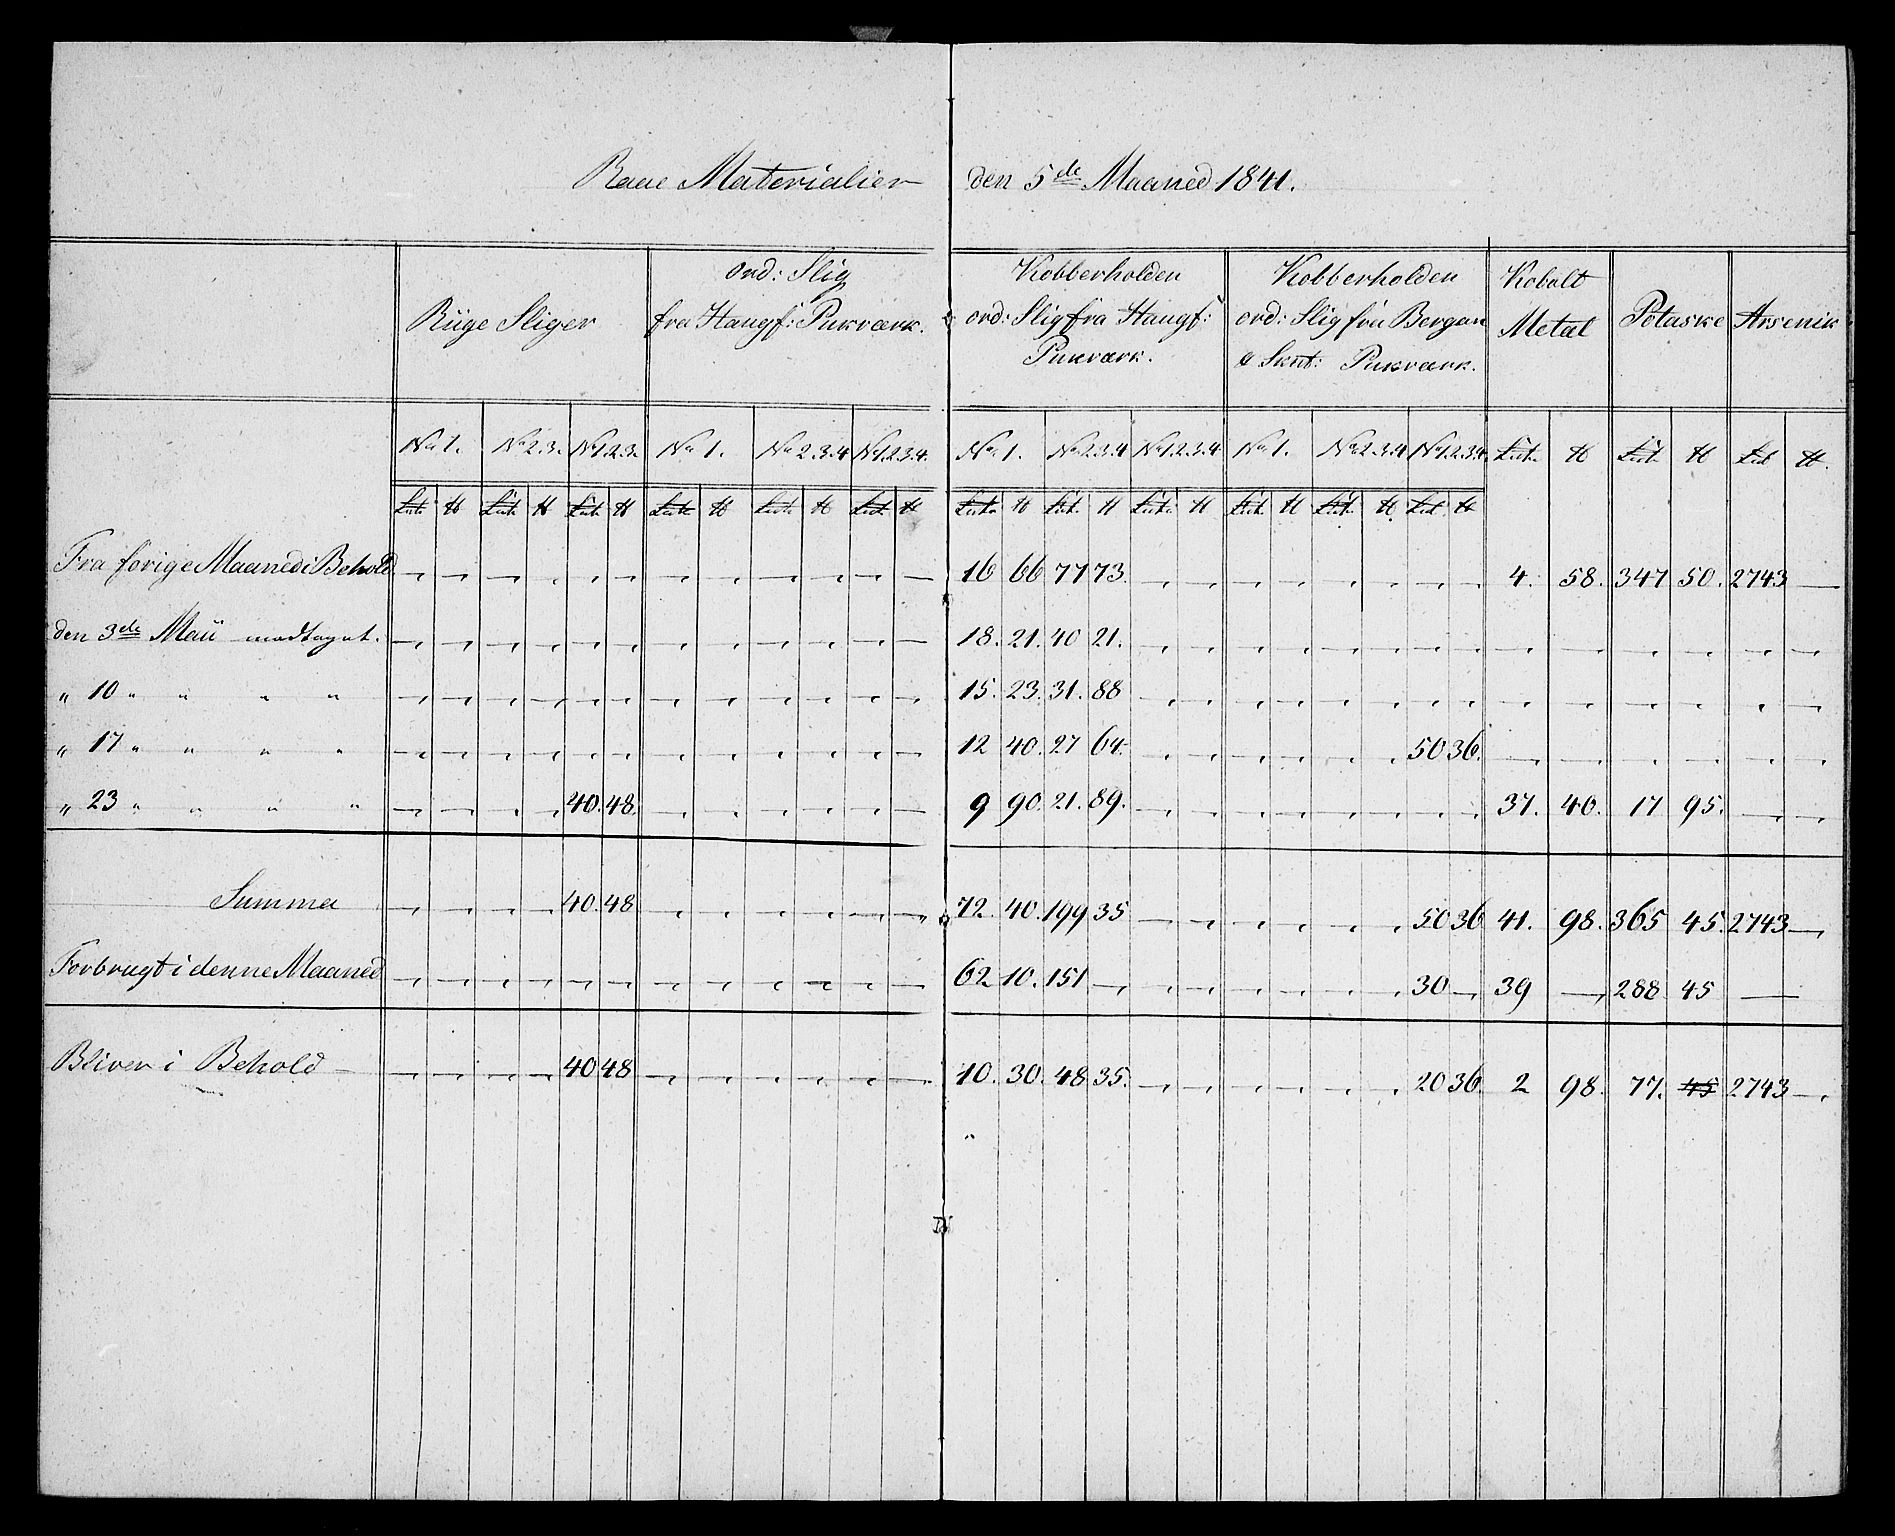 Raae Materialier den 5de Maaned 1841.
Rüge Sliger | ord: Slig fra Haugf: Pukværk. | Kobberholden ord: Slig fra Haugf: Pukværk. | Kobberholden ord: Slig fra Bergan & Skut: Pukværk. | Kobolt Metal | Potaske | Arsenik
No 1. | No 2.3. | No 1.2.3. | No 1. | No 2.3.4 | No 1.2.3.4. | No 1. | No 2.3.4 | No 1.2.3.4 | No 1. | No 2.3.4 | No 1.2.3.4
Fra forige Maaned i Behold 16 66 77 73. 4. 58. 347 50. 2743 —
den 3de Maii modtaget. 18. 21. 40 21.
„ 10 „ „ „ „ 15. 23. 31. 88
„ 17 „ „ „ „ 12 40. 27 64. 50 36.
„ 23 „ „ „ „ 40. 48. 9 90. 21. 89. 37. 40. 17 95.
Summa 40. 48 72. 40. 199 35 50 36 41. 98. 365 45. 2743 —
Forbrugt i denne Maaned 62 10. 151 — 30 — 39 — 288 45 —
Bliver i Behold — 40 48 10. 30. 48 35. 20 36. 2 98. 77. 45 2743 —